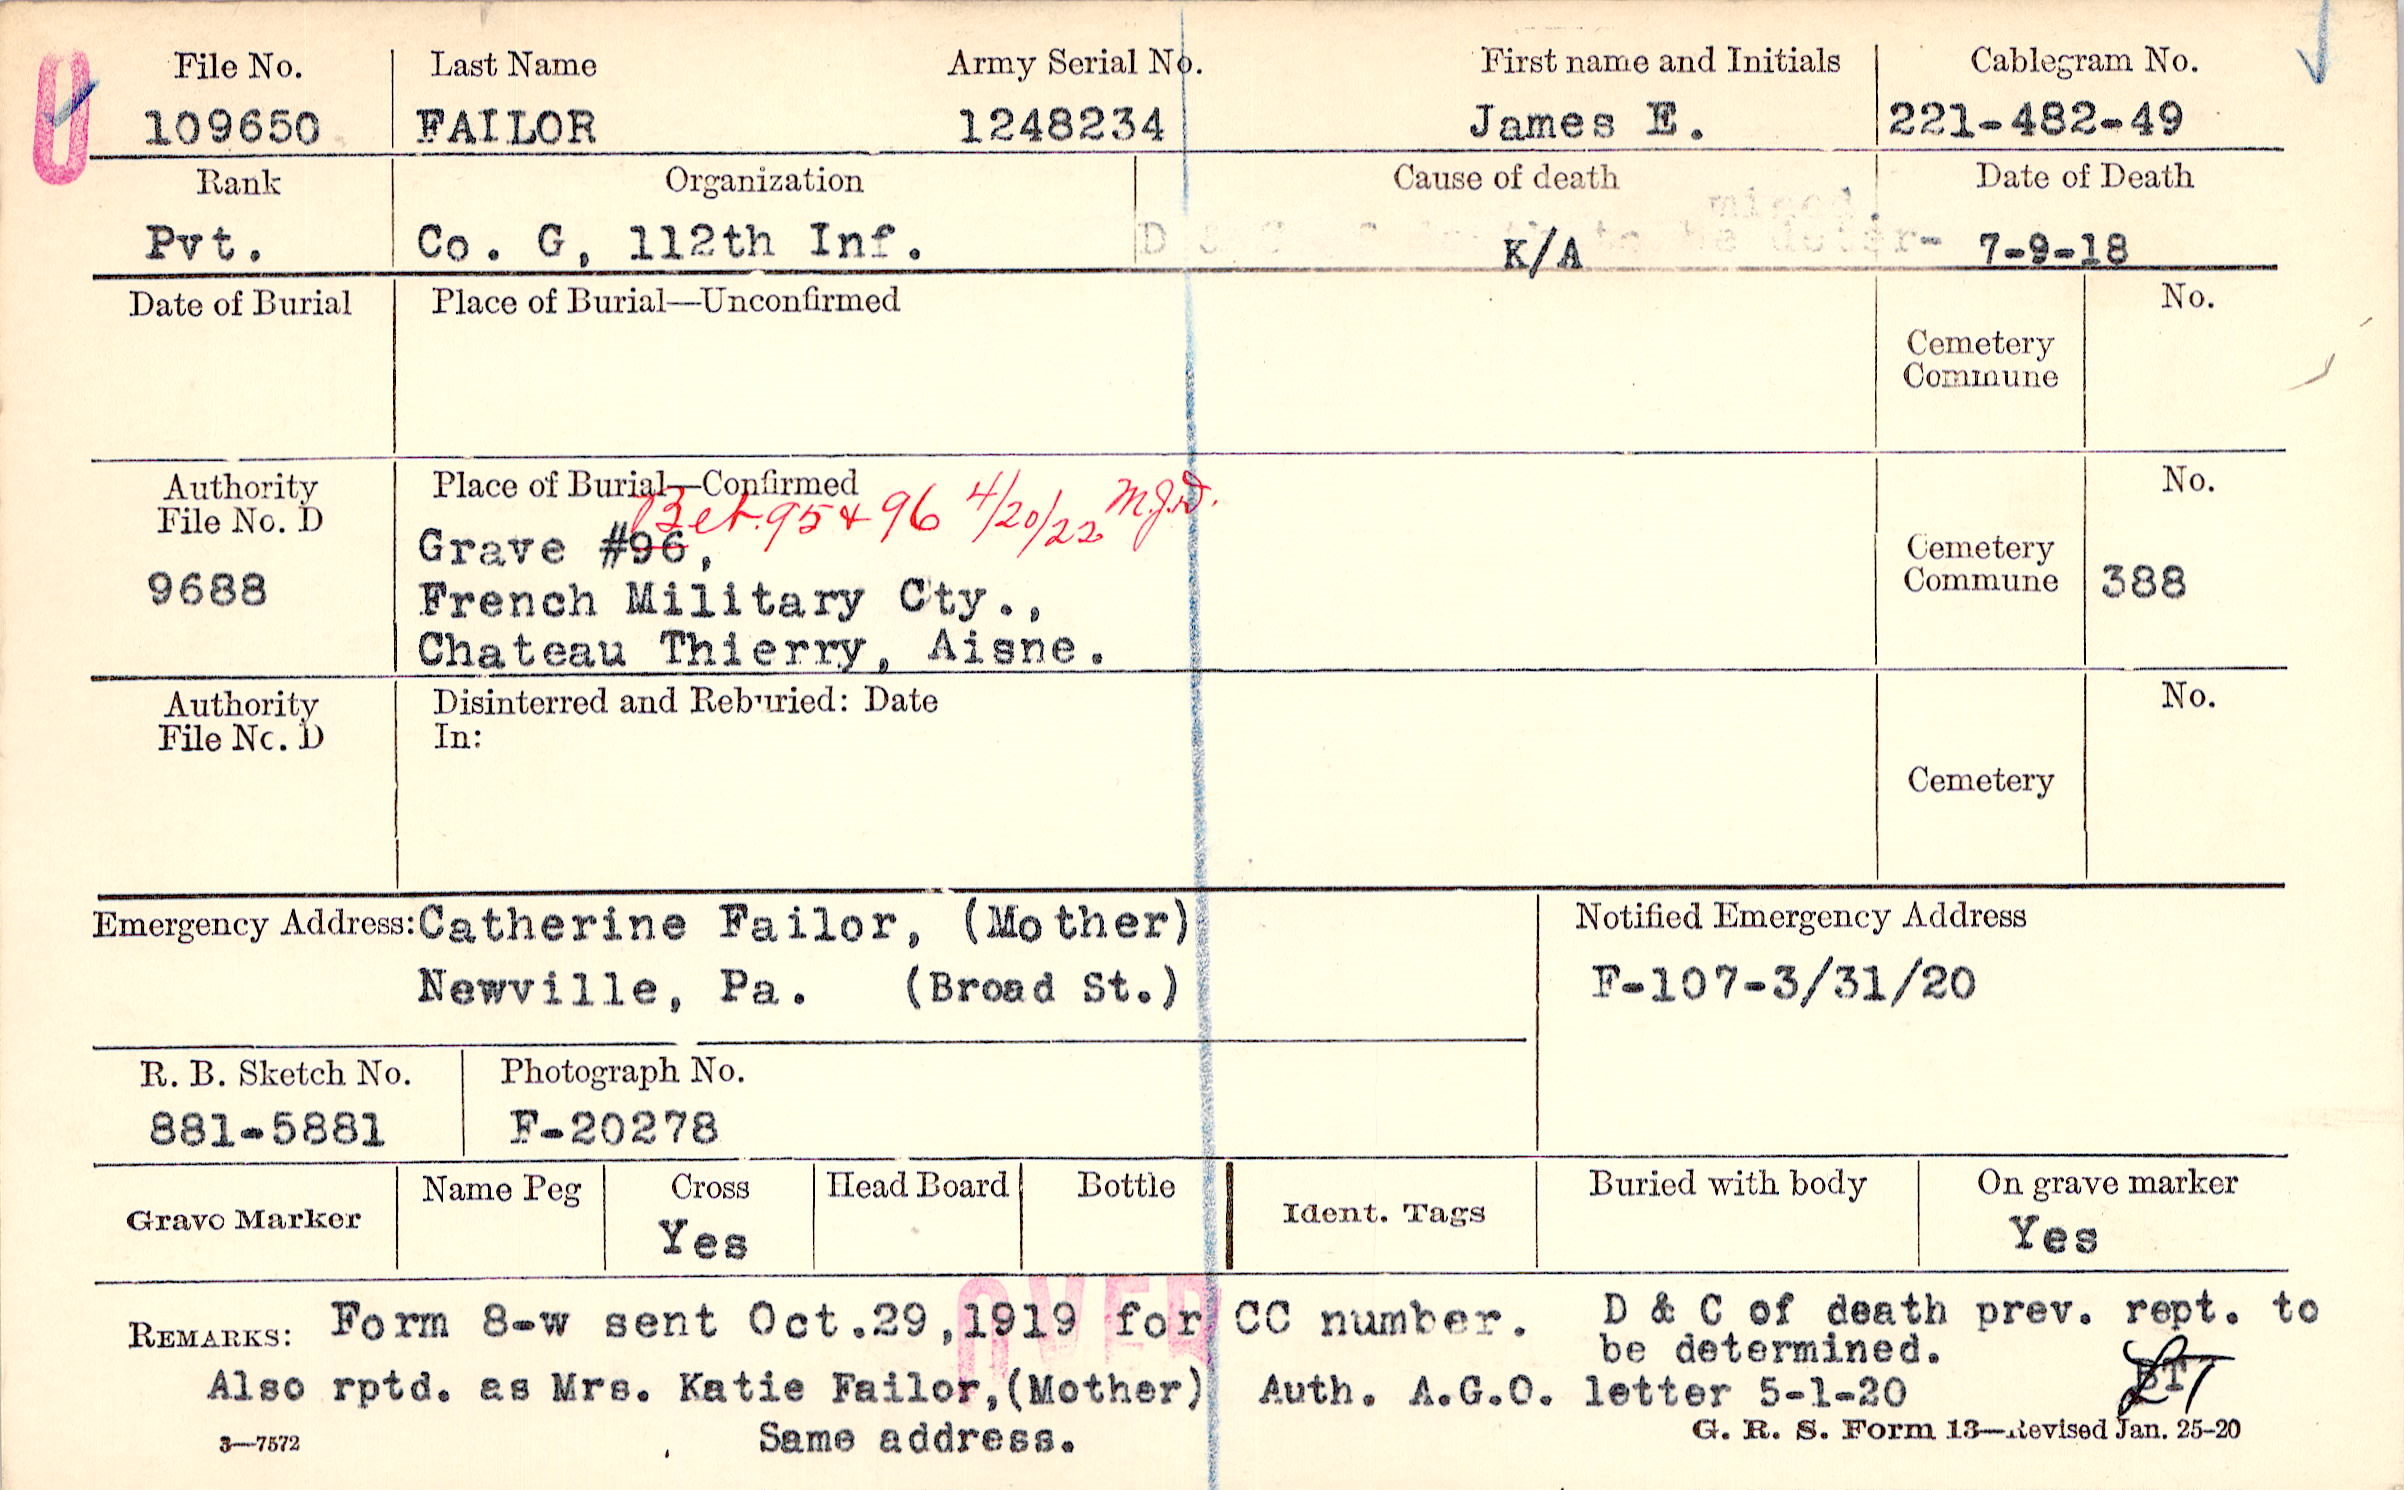 File No. Last Name Army Serial No. First name and Initials Cablegram No.
109650 FAILOR 1248234 James E. 221-482-49
Rank Organization Cause of death Date of Death
mined.
Pvt. Co. G, 112th Inf. D & C to be deter- K/A 7-9-18
Date of Burial Place of Burial—Unconfirmed No.
Cemetery
Commune
Authority Place of Burial—Confirmed No.
File No. D Bet. 95 & 96 4/20/22 M.J.D.
Grave #96, Cemetery
9688 French Military Cty., Commune 388
Chateau Thierry, Aisne.
Authority Disinterred and Reburied: Date No.
File No. D In:
Cemetery
Emergency Address: Catherine Failor, (Mother) Notified Emergency Address
Newville, Pa. (Broad St.) F-107-3/31/20
R. B. Sketch No. Photograph No.
881-5881 F-20278
Grave Marker Name Peg Cross Head Board Bottle Ident. Tags Buried with body On grave marker
Yes Yes
OVER
REMARKS: Form 8-w sent Oct.29,1919 for CC number. D & C of death prev. rept. to
be determined.
Also rptd. as Mrs. Katie Failor,(Mother) Auth. A.G.O. letter 5-1-20
Same address.
3—7572 G. R. S. Form 13—Revised Jan. 25-20